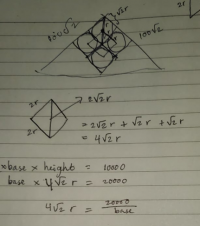 √2r
2r
100√2
100√2
2r
2√2 r
2r
= 2√2 r + √2 r + √2 r
= 4√2 r
base × height = 10000
base × 4√2 r = 20000
4√2 r = 20000
base